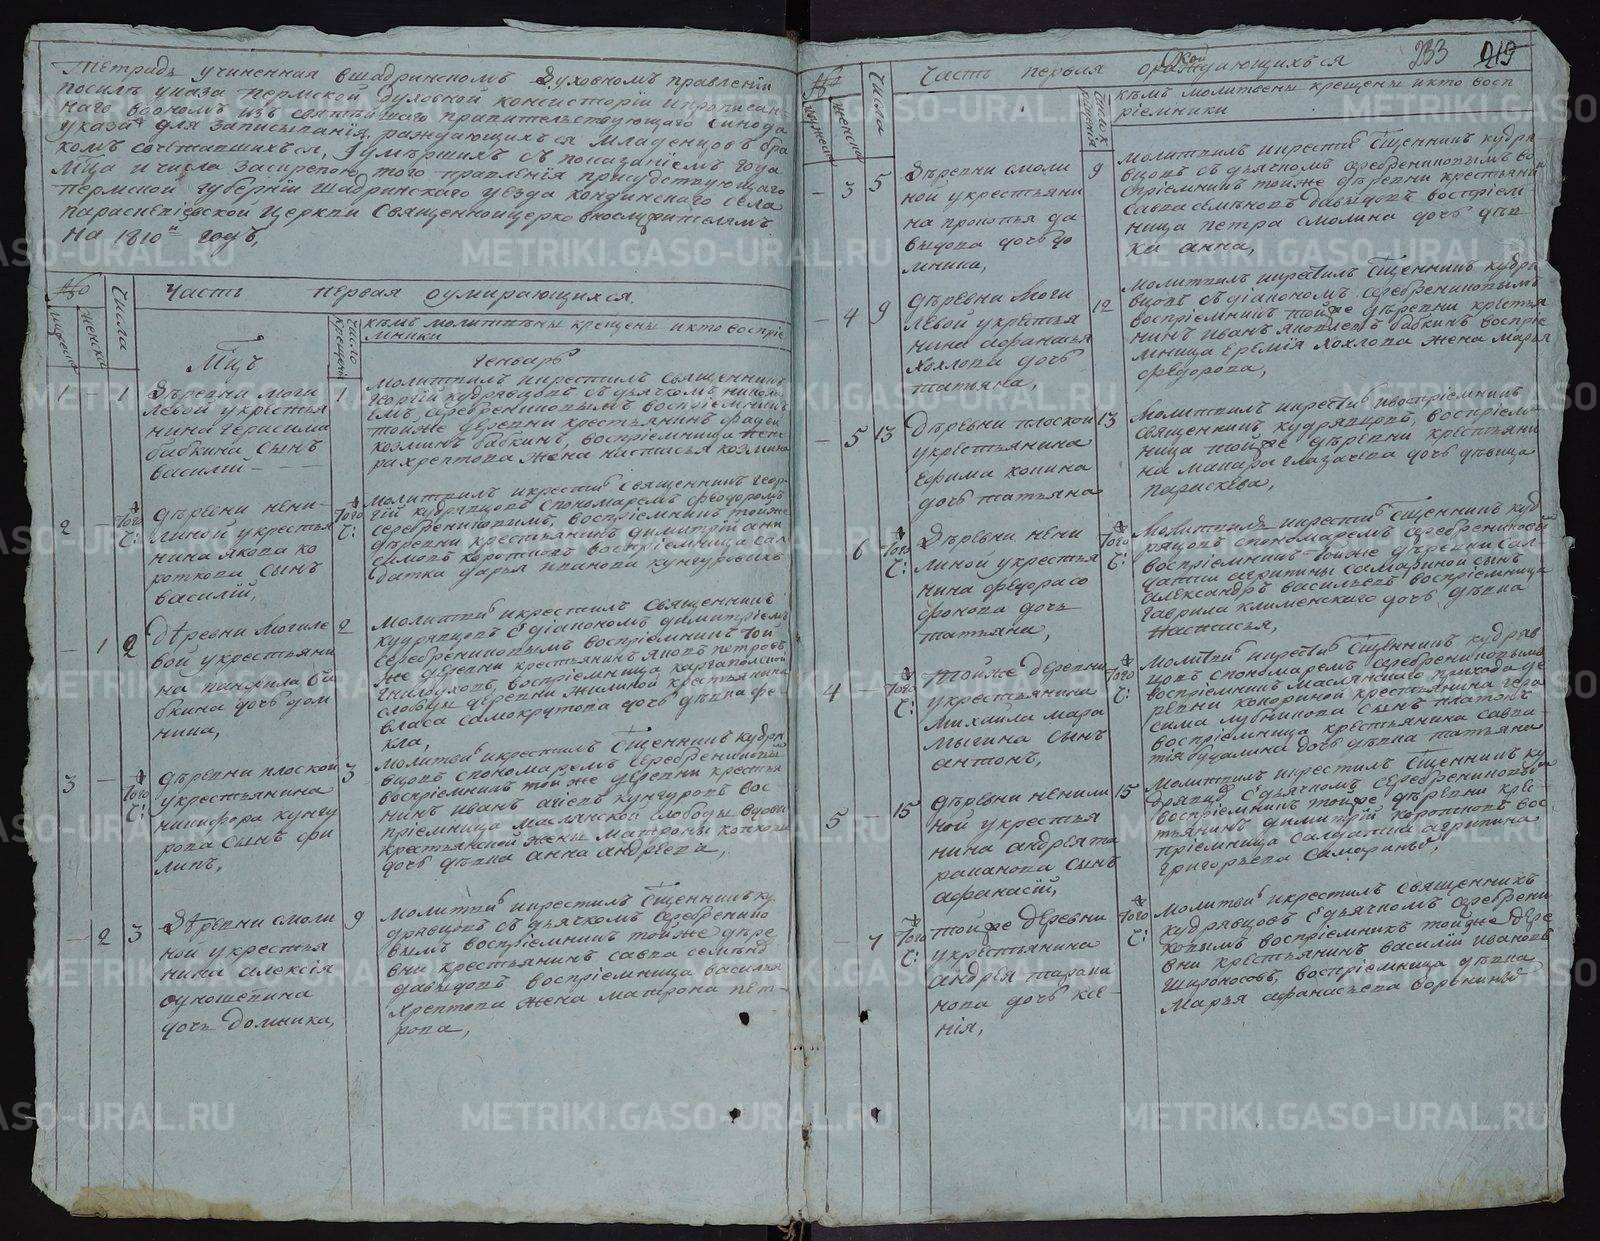 Тетрадь учиненная вшадринскомъ Духовномъ правленіи
посилъ указа пермской духовной консисторіи ипрописан
наго воономъ изъ святѣйшаго правительствующаго синода
указа для записыванія раждающихъся младенцовъ бра
комъ сочетавшихъся, Іумѣршихъ съ показаніемъ года
мца ичисла заскрепою того правленія присудствующаго
пермской губерніи шадринскаго уезда кондинскаго села
параскевіевской Церкви Священноицерковнослужителямъ
На 1810й годъ,
№ Числа Часть первая оумирающихся.
мужеска женска
Число крещенія
кѣмъ молитвены крещены икто воспріе
мники
Мцъ Генварь
1 – 1 Деревни моги
левой укрестья
нина герасима
бабкина сынъ
василій
1 молитвилъ икрестилъ священникъ
Георгій кудрявцовъ съ дьячкомъ никола
емъ серебрениковымъ воспріемникъ
тойже деревни крестьянинъ фадей
козминъ бабкинъ, воспріемница
жена настасья козмина
2 – того ч: Деревни нени-
линой укрестья
нина якова ко
роткова сынъ
василій,
того ч: молитвилъ икрестилъ священникъ геор-
гій кудрявцовъ спономаремъ феодоромъ
серебрениковымъ, воспріемникъ тойже
деревни крестьянинъ димитрій ани
симовъ коротковъ воспріемница сал-
датка дарья иванова кунгуровыхъ
– 1 2 Деревни Могиле
вой укрестьяни
на гаврила ба
бкина дочь дом
ника,
2 молитвилъ икрестилъ Священникъ
кудрявцовъ съ діакономъ димитріемъ
серебрениковымъ воспріемникъ той
же деревни крестьянинъ яковъ петровъ
гнилоуховъ воспріемница каргапольской
слободы деревни жилиной крестьянина
власа самокрутова дочь девка фе
кла,
3 – того ч: деревни плоской
укрестьянина
никифора кунгу
рова сынъ фи
липъ,
3 молитвилъ икрестилъ Сщенникъ кудря
вцовъ спономаремъ серебрениковымъ
воспріемникъ той же деревни крестья
нинъ иванъ кунгуровъ вос
пріемница маслянской слободы вдовы
крестьянской жены матроны
дочь девка анна андреева,
– 2 3 Деревни смоли
ной укрестья
нина алексія
дочь домника,
9 молитвилъ икрестилъ Сщенникъ ку
дрявцовъ съ дьячкомъ серебренико
вымъ воспріемникъ тойже дере
вни крестьянинъ савва семенъ
давыдовъ воспріемница василья
жена матрона пет-
рова,
233 219
№ Числа Часть первая ораждающихъся
мужеска женска
Число крещенія
кѣмъ молитвены крещены икто восп
ріемники
– 3 5 Деревни смоли
ной укрестьяни
на прокопья да
выдова дочь до
мника,
9 молитвилъ икрестилъ Сщенникъ кудря
вцовъ съ дьячкомъ серебрениковымъ во
спріемникъ тойже деревни крестьянинъ
савва семеновъ давыдовъ воспріем-
ница петра смолина дочь дев
ка анна,
– 4 9 деревни Моги
левой укрестья
нина афанасья
хохлова дочь
татьяна,
12 молитвилъ икрестилъ Сщенникъ кудря
вцовъ съ діакономъ серебрениковымъ
воспріемникъ тойже деревни крестья
нинъ иванъ яковлевъ бабкинъ воспріе
мница Еремѣя хохлова жена марья
федорова,
– 5 13 Деревни плоской
укрестьянина
Ефима копина
дочь татьяна
13 Молитвилъ икрестилъ
Священникъ кудрявцовъ, воспріем-
ница тойже деревни крестьяни
на макара глазачева дочь девица
параскева,
– 6 того ч: Деревни нени
линой укрестья
нина федора со
фронова дочь
татьяна,
того ч: Молитвилъ икрестилъ Сщенникъ куд
рявцовъ спономаремъ серебрениковымъ
воспріемникъ тойже деревни сал-
датки агрипины самариной сынъ
александръ васильевъ воспріемница
гаврила клименскаго дочь девка
настасья,
4 – того ч: тойже деревни
укрестьянина
михаила мара
мыгина сынъ
антонъ,
того ч: Молитвилъ икрестилъ Сщенникъ кудряв
цовъ спономаремъ серебрениковымъ
воспріемникъ маслянскаго прихода де
ревни крестьянина гера
сима лубникова сынъ платонъ
воспріемница крестьянина савва-
тія дочь девка татьяна
5 – 15 деревни ненили
ной укрестья
нина андрея та
раканова сынъ
афанасій,
15 Молитвилъ икрестилъ Сщенникъ ку
дрявцовъ съ дьячкомъ серебрениковымъ
воспріемникъ тойже деревни крес-
тьянинъ димитрій коротковъ вос
пріемница салдатка агрипина
григорьева самариныхъ,
– 7 того ч: тойже деревни
укрестьянина
андрея тарака
нова дочь ксе-
нія,
того ч: Молитвилъ икрестилъ священникъ
кудрявцовъ съ дьячкомъ серебрени
ковымъ воспріемникъ тойже дере
вни крестьянинъ василій ивановъ
широносовъ, воспріемница девка
Марья афанасьева
METRIKI.GASO-URAL.RU